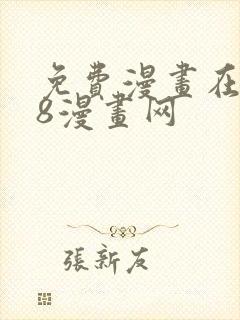 免費漫畫在
8漫畫网
張新友